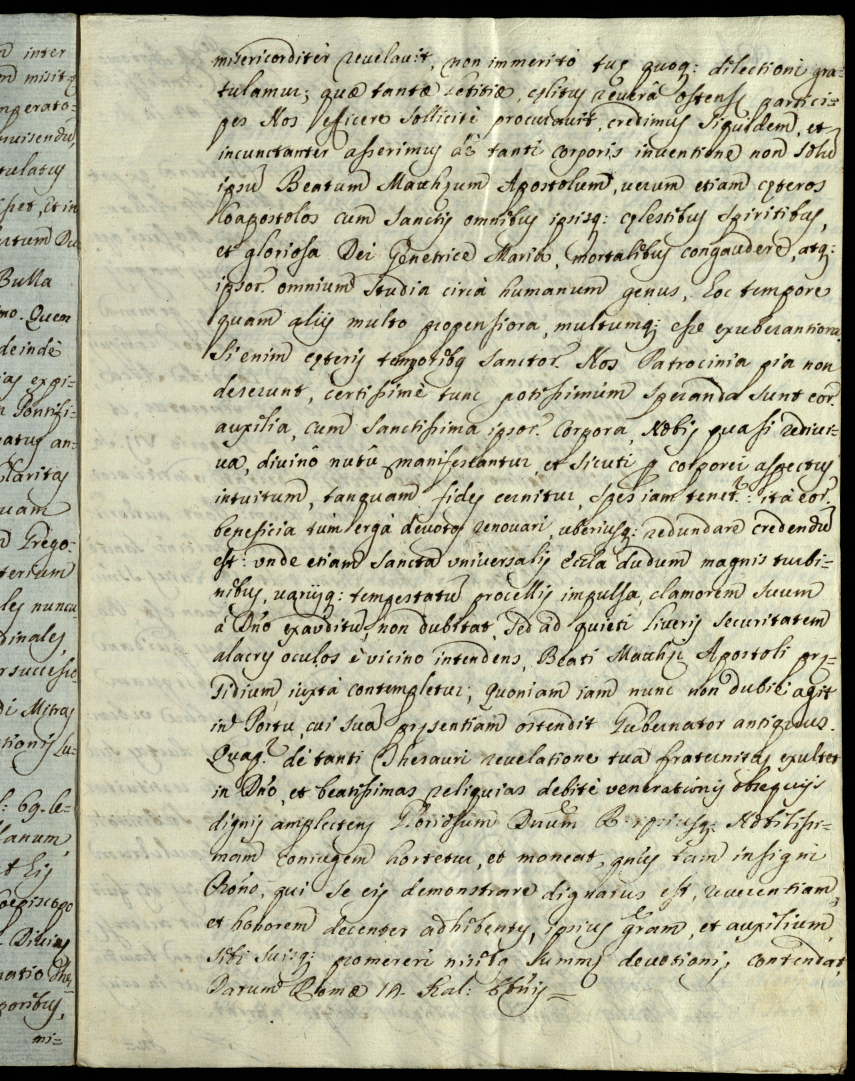 n inter
m misit
mperato=
muisendū,
tulatus
ihet, et in
Bulla
mo. Quem
deindè
ias expi=
n Pontifi=
natus an=
claritas
quam
d Grego=
terium
les nuncu
dinales,
r successio
di Mitras
tionis Lu=
l: 69. le=
lanum,
t Eis
oepiscopo
Divins
natio
goribus,
mi=
misericorditèr revelavit, non immeritò tuę quoq: dilectioni gra=
tulamur; quæ tantæ lætitiæ, cęlitus reverà ostensę partici=
pes Nos efficere sollicitè procuravit, credimus siquidem, et
incunctanter asserimus de tanti corporis inventione non solū
ipsū Beatum Matthęum Apostolum, verum etiam cęteros
Coapostolos cum Sanctis omnibus ipsisq: cęlestibus Spiritibus,
et gloriosa Dei Genetrice Maria, mortalibus congaudere, atq:
ipsor. omnium studia circà humanum genus, hoc tempore
quam aliis multò propensiora, multumq; esse exuberantiora.
Si enim cęteris temporibq Sanctor. Nos Patrocinia pia non
deserunt, certissimè tunc potissimùm speranda sunt eor.
auxilia, cum Sanctissima ipsor. Corpora, Nobis quasi redivi=
va, divinô nutû manifestantur, et sicuti p corporei aspectus
intuitum, tanquam fides cernitur, spes iam tenet.: ità eor.
beneficia tùm ergà devotos renovari, uberiusq: redundare credendū
est: unde etiam Sancta universalis Eccla dudum magnis turbi=
nibus, variisq: tempestatū procellis impulsa, clamorem suum
à Dn̄o exauditū, non dubitat, sed ad quieti liveris securitatem
alacres oculos è vicino intendens, Beati Matthęi Apostoli prę=
sidium iuxtà contempletur; Quoniam iam nunc non dubiè agit
in Portu, cui suā pręsentiam ostendit Gubernator antiquus.
Quap. de tanti Thesauri revelatione tua fraternitas exultet
in Dn̄o, et beatissimas reliquias debitè venerationis obsequiis
dignis amplectens Gloriosum Ducem R. ipsiusq; Nobilissi=
mam coniugem hortetur, et moneat, quas tam insigni
Rōno, qui se eis demonstrare dignatus est, reverentiam,
et honorem decenter adhibentes, ipsius gram, et auxilium,
sibi suisq; promereri nisu summę devotionis, contendat,
Datum Romæ 14. Kal: 8bris=